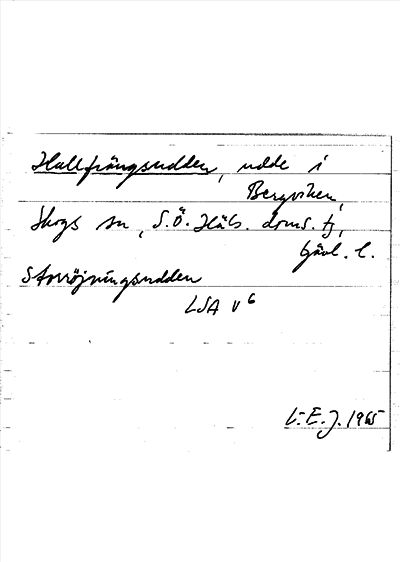 Hallfrängsudden, udde i
Bergviken,
Skogs sn, S.Ö. Häls. doms. tj,
Gävl. l.
Storröjningsudden
LSA v 6
L-E.J. 1965